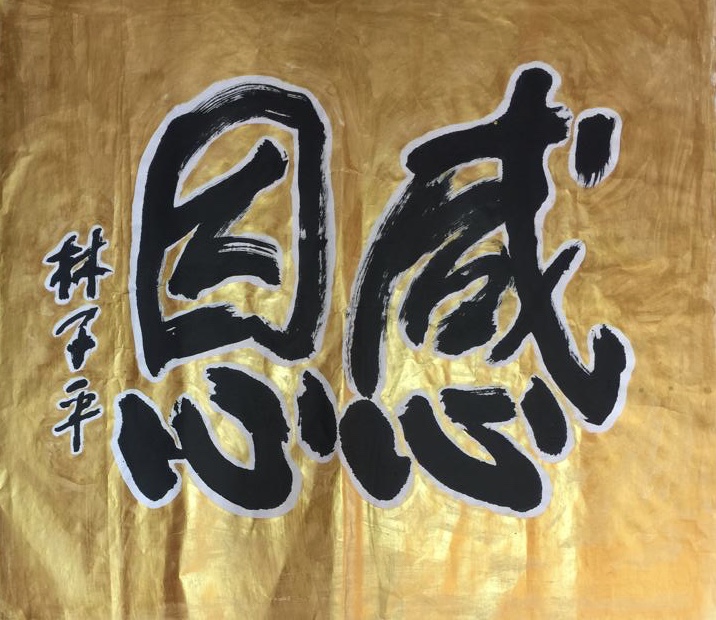 感恩
林子平